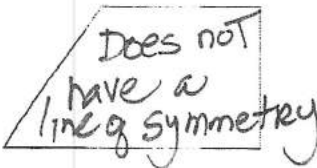 Does not
have a
line of symmetry